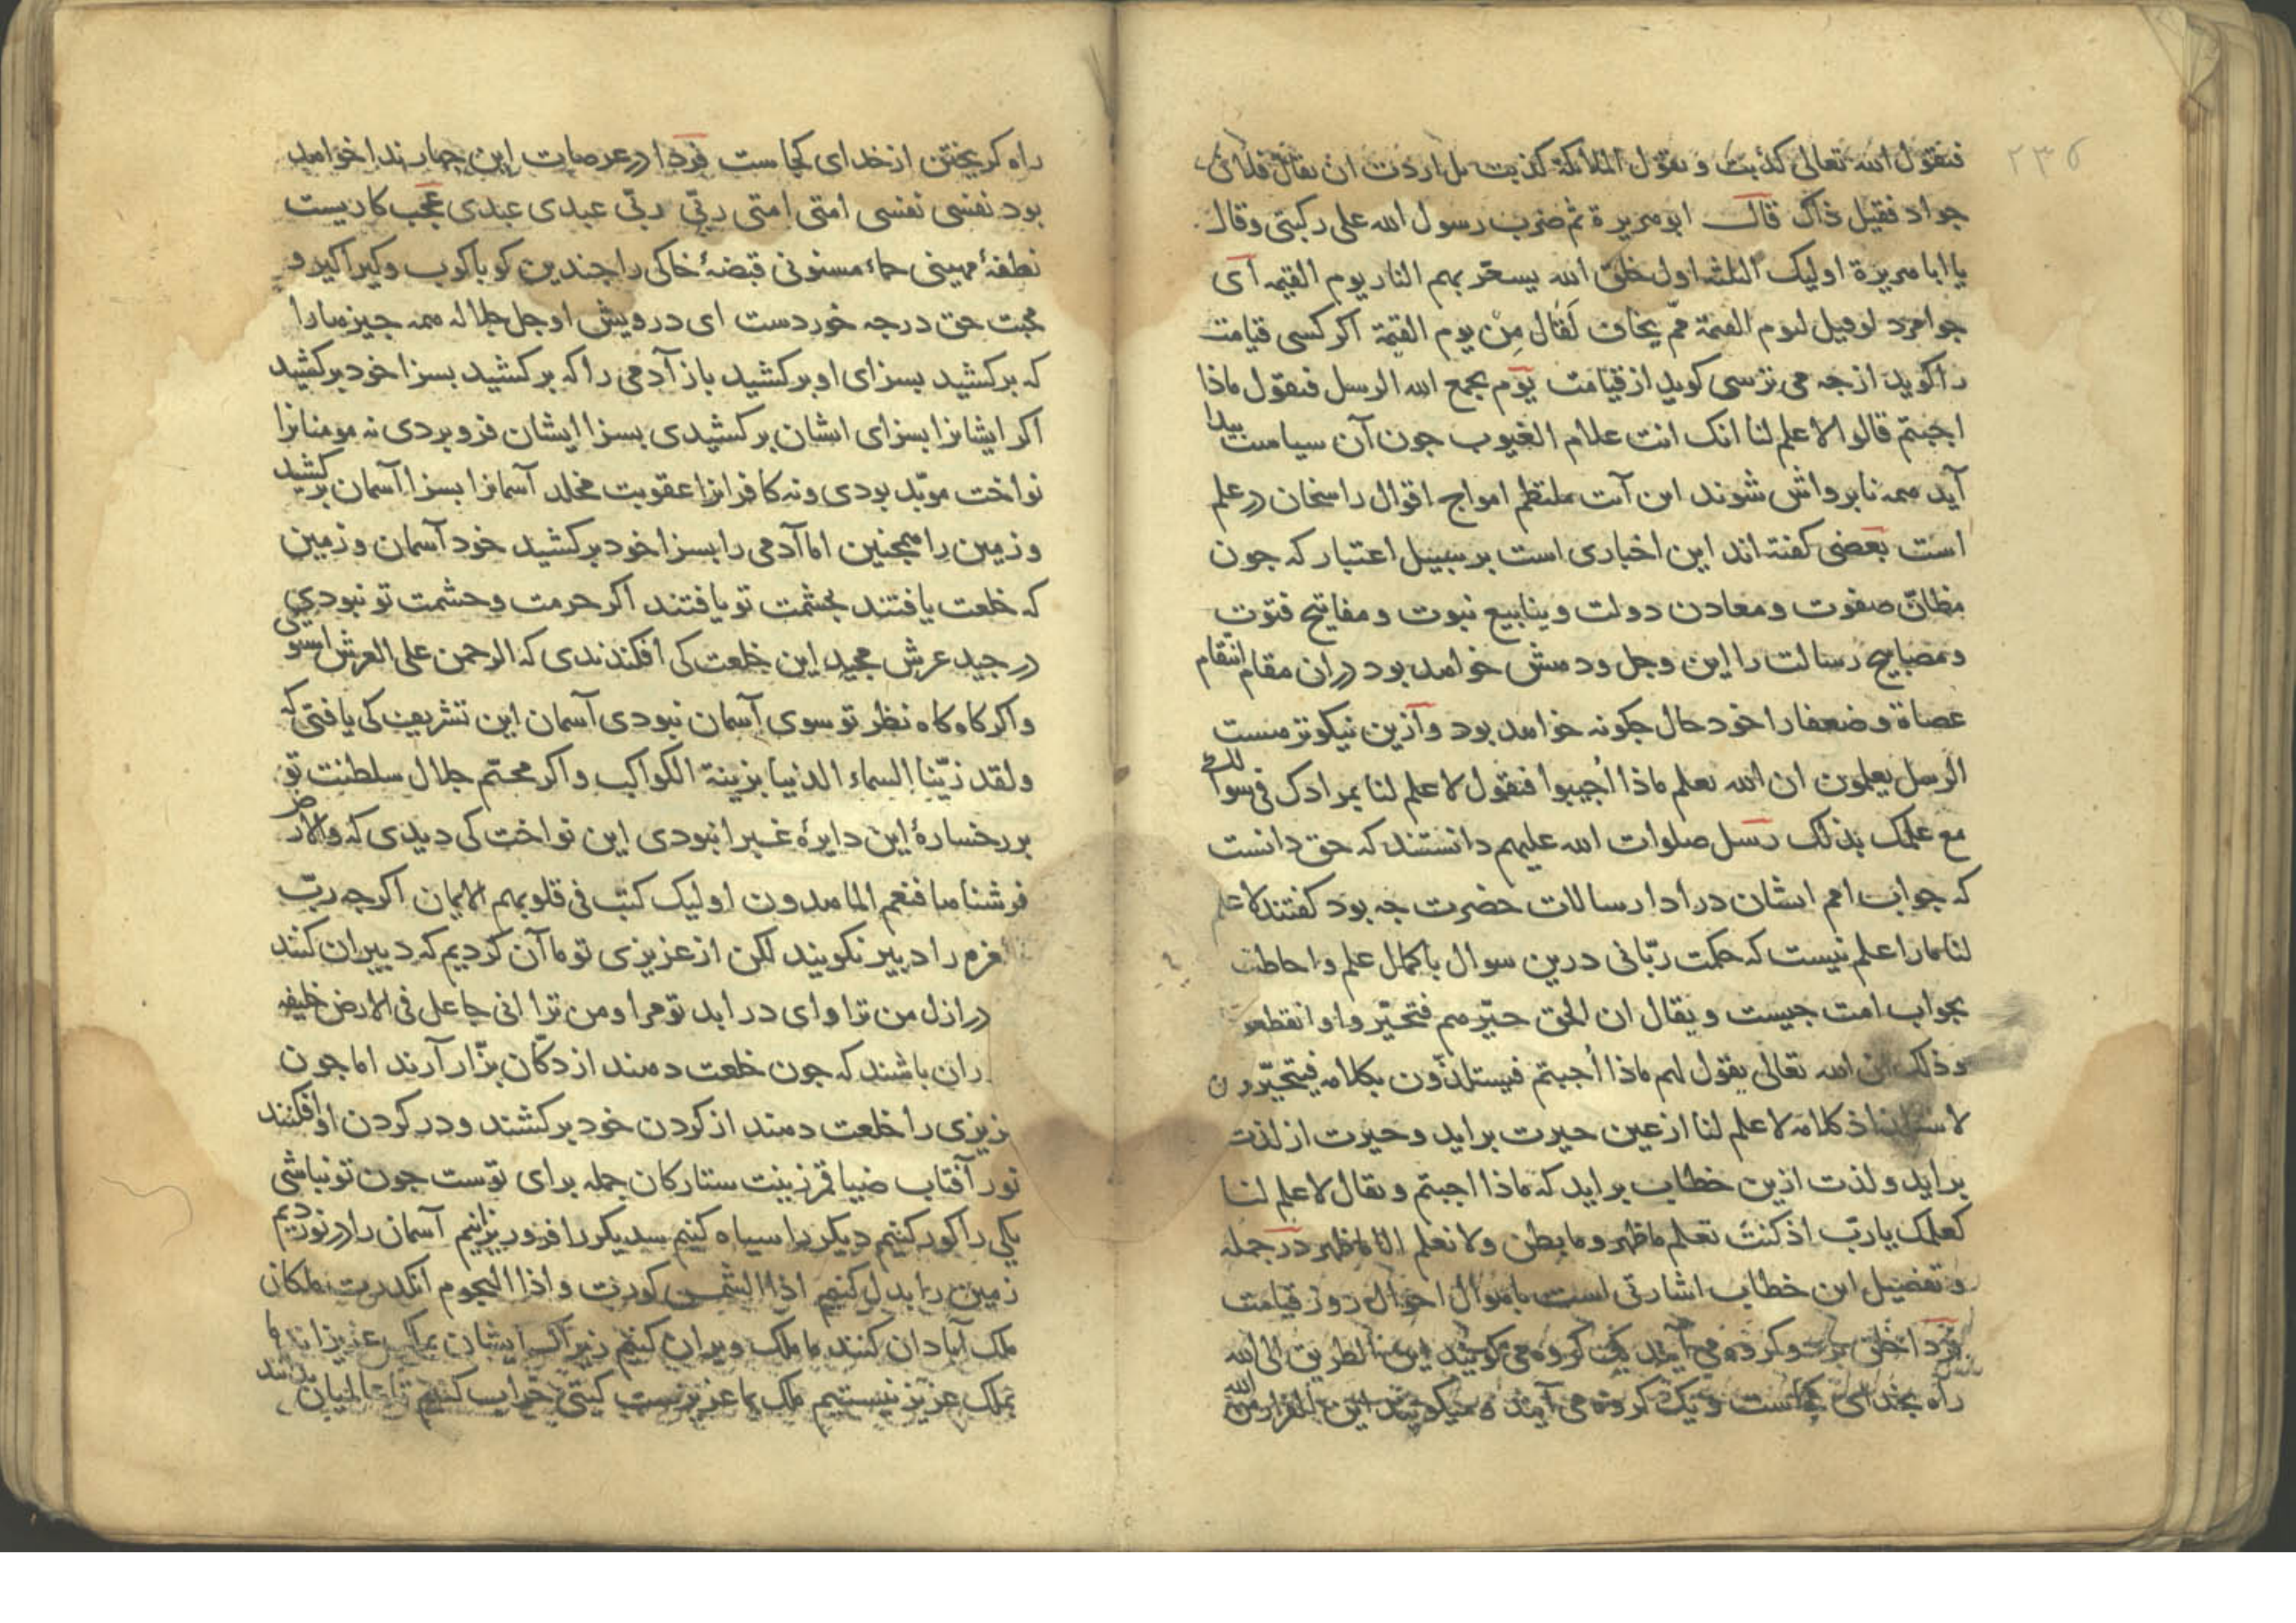 ۲۳۵
فیقول الله تعالی کذبت و یقول الملائکة کذبت بل اردت ان یقال فلان
جواد فقیل ذاک قال ابوهریرة ثم ضرب رسول الله علی رکبتی وقال
یا ابا هریرة اولیک الثلثه اول خلق الله یسعّر بهم النار یوم القیمه ای
جوامرد لوقیل لیوم القیمة ممّ یخاف لَقال مِنْ یوم القیمة اکر کسی قیامت
را کوید از جه می ترسی کوید از قیامت یوم یجمع الله الرسل فیقول ماذا
اجبتم قالوا لا علم لنا انک انت علام الغیوب جون آن سیاست بیدا
آید همه نابرواش شوند این آیت ملتطم امواج اقوال راسخان در علم
است بعضی کفته اند این اخباری است بر سبیل اعتبار که جون
مظانّ صفوت و معادن دولت و ینابیع نبوت و مفاتیح فتوّت
و مصابیح رسالت را این وجل و دهش خواهد بود در ان مقام انتقام
عصاة و ضعفا را خود حال جکونه خواهد بود و ازین نیکوتر هست
الرسل یعلمون ان الله یعلم ماذا اُجیبوا فنقول لا علم لنا بمرادک فی سوالک
مع علمک بذلک رسل صلوات الله علیهم دانستند که حق دانست
که جواب امم ایشان در ادا رسالات حضرت جه بود کفتند لا علم
لنا مارا علم نیست که حکمت ربّانی درین سوال با کمال علم و احاطت
بجواب امت جیست و یقال ان الحق حیّرهم فتحیّروا وانقطعوا
وذلک ان الله تعالی یقول لهم ماذا اُجبتم فیستلذّون بکلامه فیتحیّرون
لاستلذاذ کلامه لا علم لنا از عین حیرت براید و حیرت از لذت
براید و لذت ازین خطاب براید که ماذا اجبتم و یقال لا علم لنا
کعلمک یا ربّ اذ کنت تعلم ما ظهر و ما بطن ولا نعلم الا ما ظهر در جمله
و تفضیل این خطاب اشارتی است باهوال احوال روز قیامت
فردا خلق می آیند یک کروه می کویند این الطریق الی الله
راه بخدای کجاست و یک کروه می آیند و میکویند این الفرار من الله
راه کریختن از خدای کجاست فردا در عرصات این جهار ندا خواهد
بود نفسی نفسی امتی امتی ربّی ربّی عبدی عبدی عجب کاریست
نطفهٔ مهینی حماء مسنونی قبضهٔ خاکی را جندین کوباکوب و کیراکیر و
محبت حق درجه خوردست ای درویش او جل جلاله همه جیزها را
که برکشید بسزای او برکشید باز آدمی را که برکشید بسزا خود برکشید
اکر ایشانرا بسزای ایشان برکشیدی بسزا ایشان فروبردی نه مومنانرا
نواخت موبّد بودی ونه کافرانرا عقوبت مخلد آسمانرا بسزا آسمان برکشید
و زمین را همجنین اما آدمی را بسزا خود برکشید خود آسمان و زمین
که خلعت یافتند بحشمت تو یافتند اکر حرمت و حشمت تو نبودی
در جید عرش مجید این خلعت کی افکندندی که الرحمن علی العرش استوی
و اکر کاه کاه نظر تو سوی آسمان نبودی آسمان این تشریف کی یافتی که
ولقد زیّنا السماء الدنیا بزینة الکواکب و اکر مخیّم جلال سلطنت تو
بر رخسارهٔ این دایرهٔ غبرا نبودی این نواخت کی دیدی که والارض
فرشناها فنعم الماهدون اولیک کتب فی قلوبهم الایمان اکر جه ربّ
العزه را دبیر نکویند لکن از عزیزی تو ما آن کردیم که دبیران کنند
در ازل من ترا و ای در ابد تو مرا و من ترا انی جاعل فی الارض خلیفه
ران باشند که جون خلعت دهند از دکّان بزّار آرند اما جون
عزیزی را خلعت دهند از کردن خود برکشند و در کردن او افکنند
نور آفتاب ضیا قمر زینت ستارکان جمله برای توست جون تو نباشی
یکی را کور کنیم دیکر را سیاه کنیم سدیکر را فرو ریزانیم آسمان را در نوردیم
زمین را بدل کنیم اذا الشمس کورت و اذا النجوم انکدرت ملکان
ملک آبادان کنند ما ملک ویران کنیم زیراک ایشان بملک عزیزاند ما
بملک عزیز نیستیم ملک بما عزیزست کیتی خراب کنیم تا عالمیان بدانند